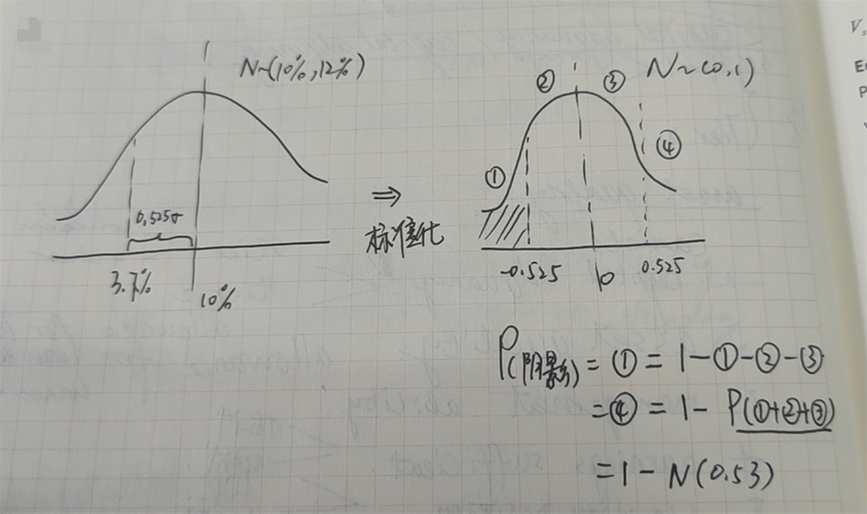 N~(10%,12%)
0.525σ
3.7%
10%
⇒
标准化
N~(0,1)
① ② ③ ④
-0.525 0 0.525
P(阴影) = ① = 1-①-②-③
= ④ = 1- P(①+②+③)
= 1-N(0.53)